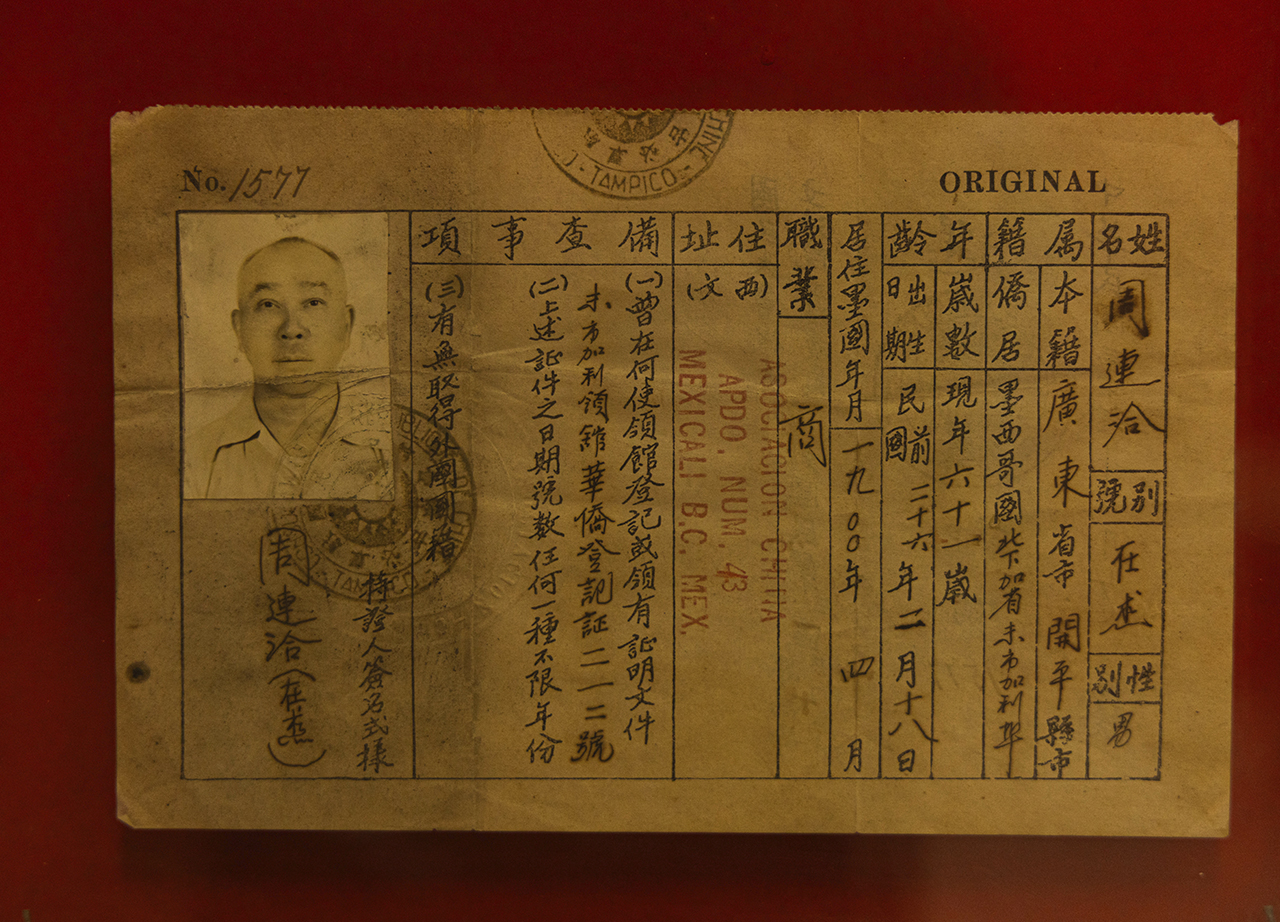 No. 1577
ORIGINAL
TAMPICO
姓名
周連洽
別號
在杰
性別
男
属籍
本籍
廣東省市開平縣市
僑居
墨西哥國北下加省未市加利华
年齡
歲數
現年六十一歲
出生日期
民國前二十六年二月十八日
居住墨國年月
一九〇〇年四月
職業
商
住址
(西文)
ASOCIACION CHINA
APDO. NUM. 43
MEXICALI B.C. MEX.
備查事項
(一)曾在何使領館登記或領有証明文件
未市加利領館華僑登記証二一二號
(二)上述証件之日期號數任何一種不限年份
(三)有無取得外國國籍
持證人簽名式樣
周連洽(在杰)
TAMPICO